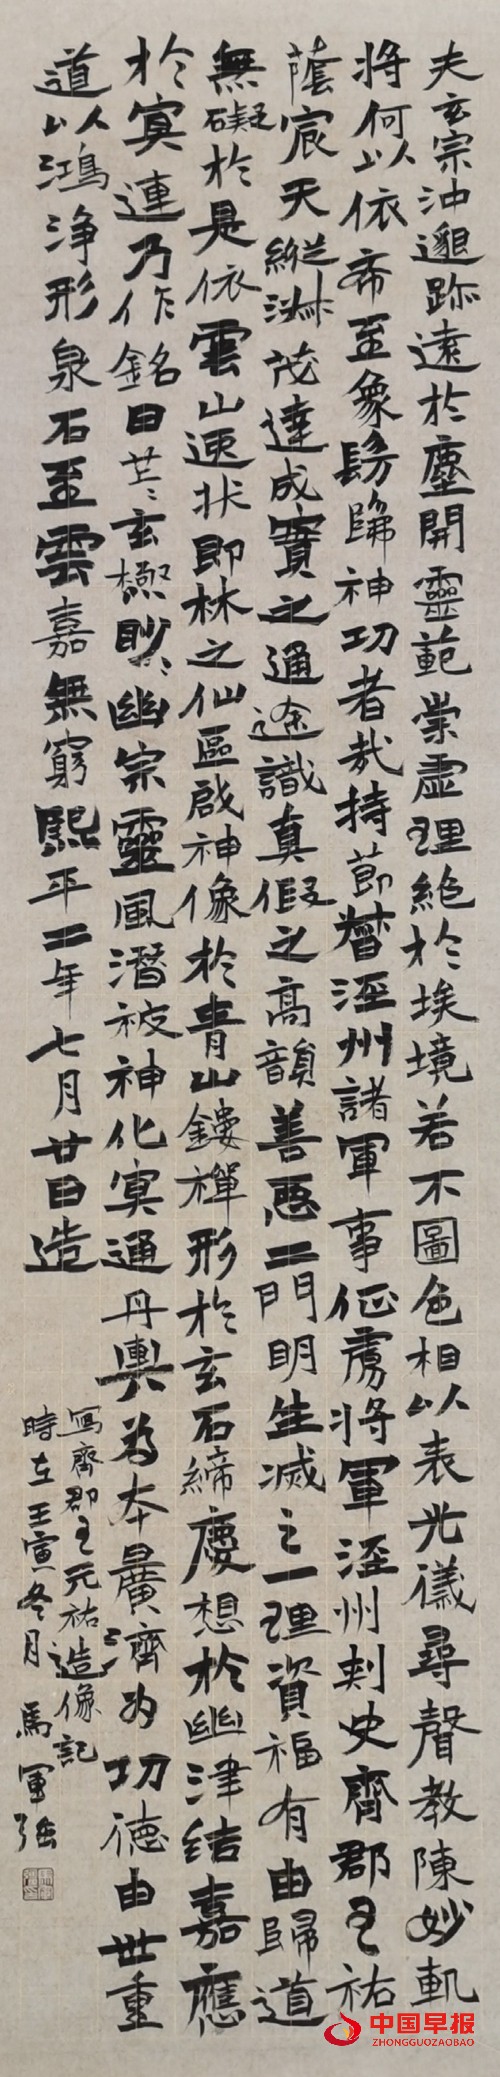 夫玄宗沖邈跡遠於塵開靈範崇虛理絶於埃境若不圖色相以表光儀尋聲教陳妙軌
將何以依希至象髣髴神功者哉持節督涇州諸軍事征虜將軍涇州刺史齊郡王祐
蔭宸天縱淋茂達成實之通途識真假之高韻善惡二門明生滅之一理資福有由歸道
無礙於是依雲山速狀即林之仙區啟神像於青山鏤禪形於玄石締慶想於幽津結嘉應
於冥運乃作銘曰芒〻玄極眇〻幽宗靈風潛被神化冥通丹輿為本廣濟為功德由世重
道以鴻淨形泉石至雲嘉無窮熙平二年七月廿日造
寫齊郡王元祐造像記
時在壬寅冬月 馬軍強
中国早报
ZHONGGUOZAOBAO